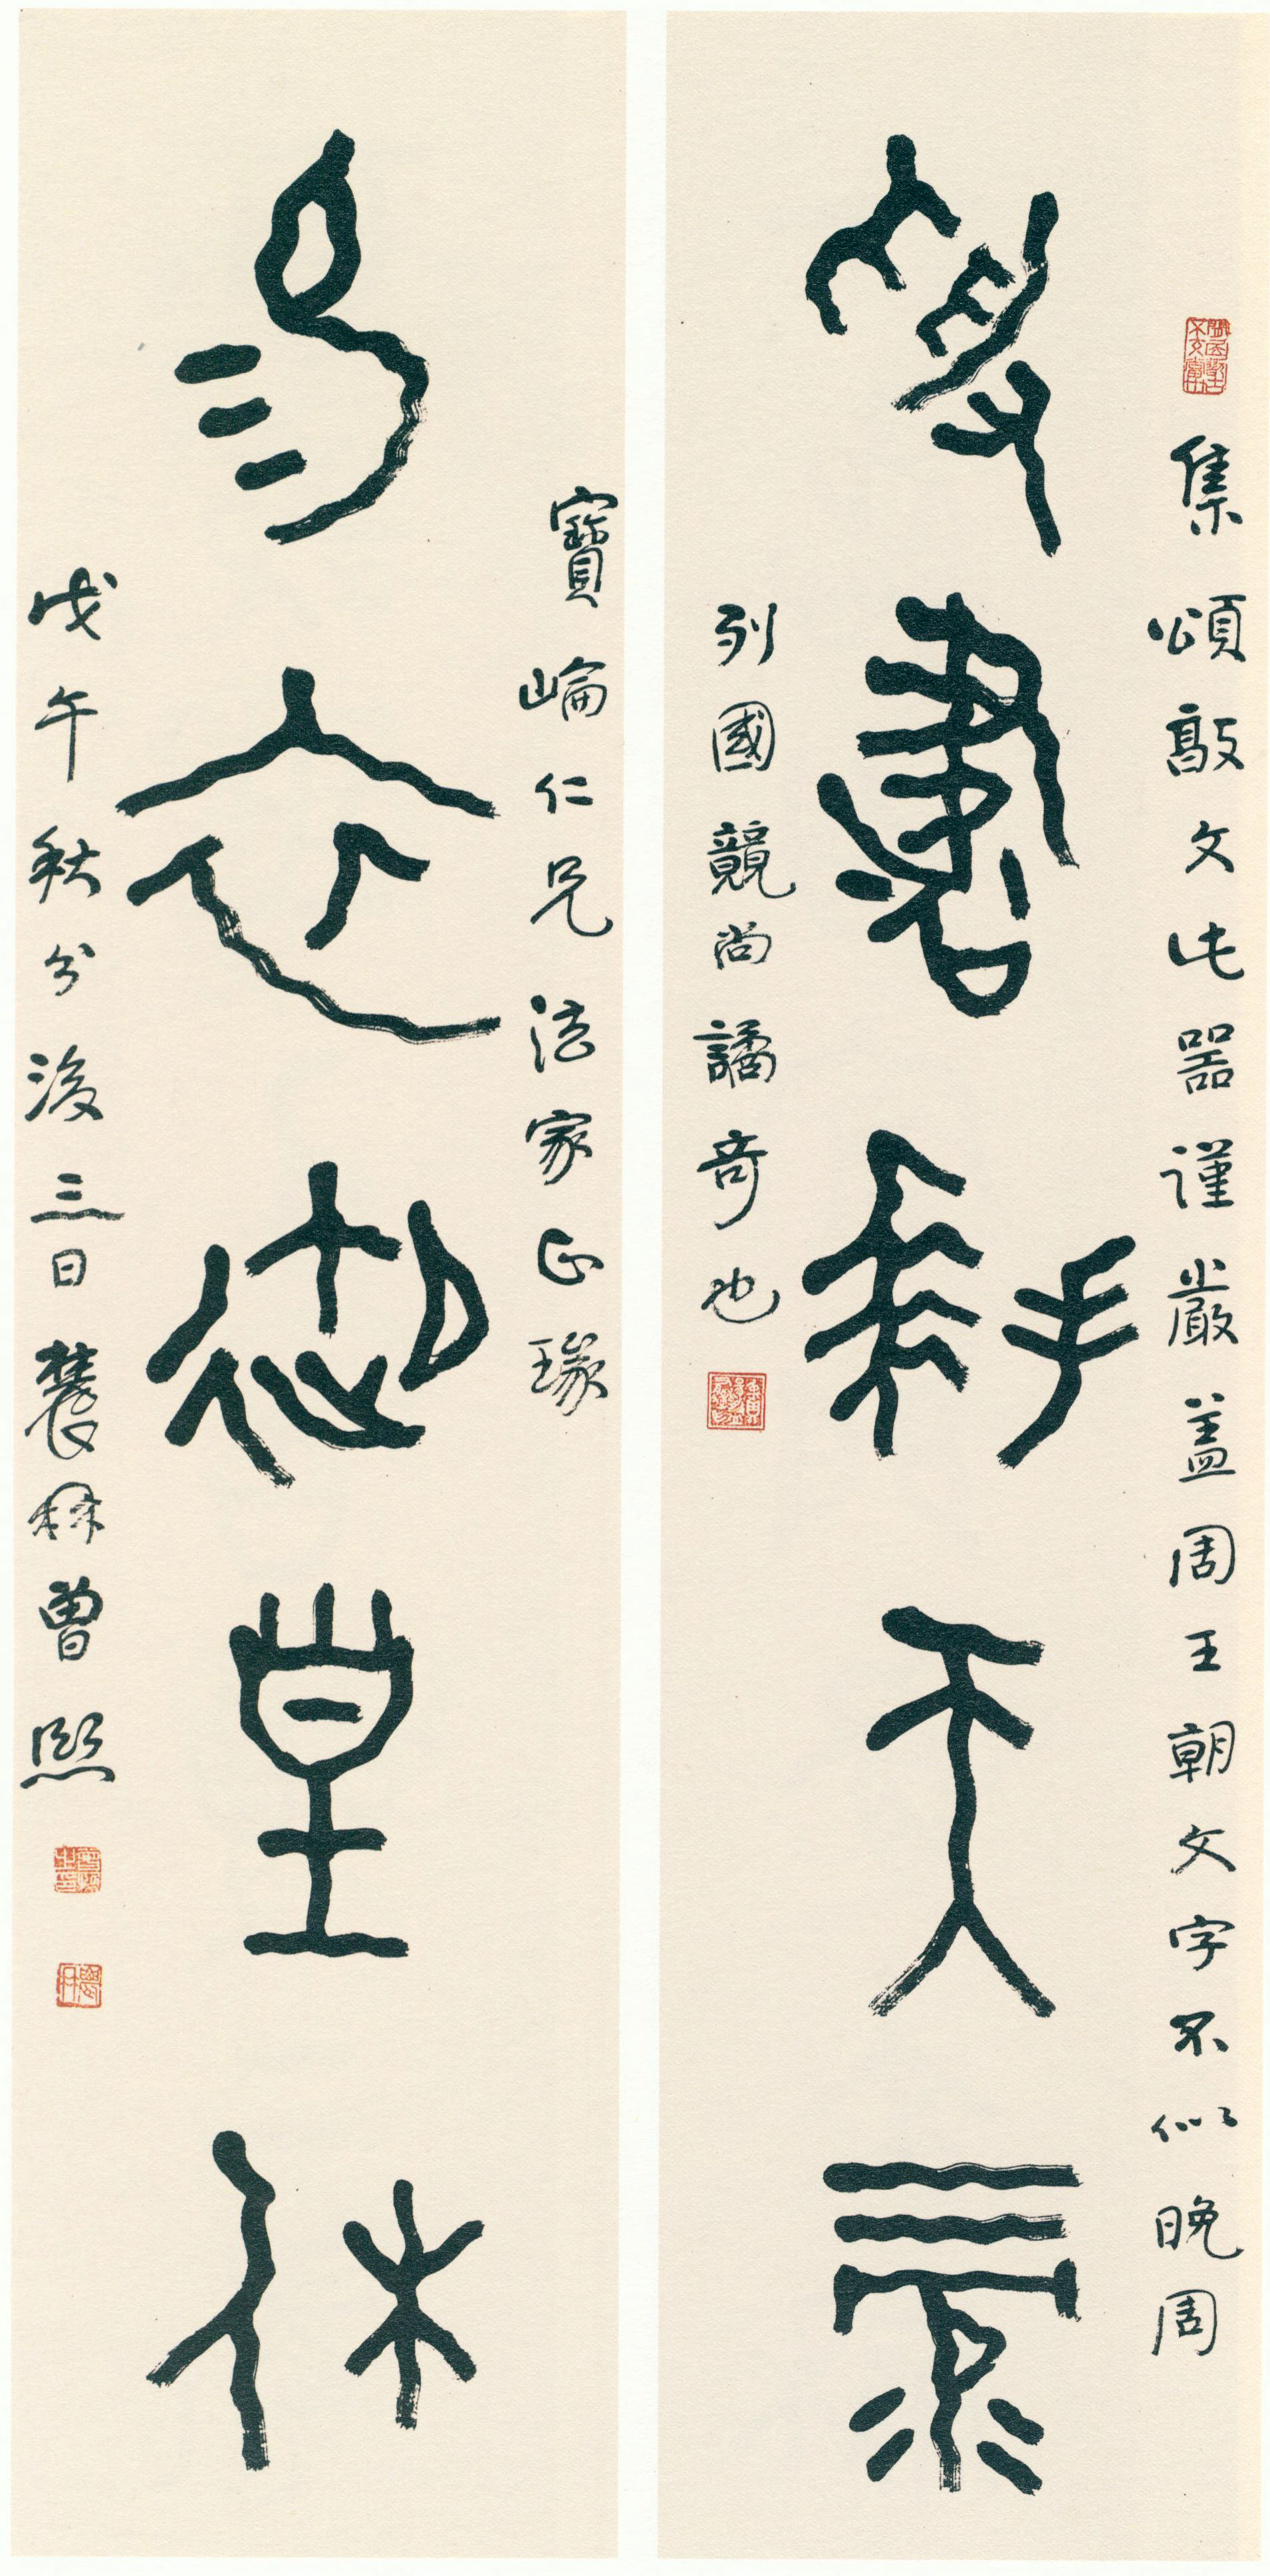 集頌敦文此器謹嚴蓋周王朝文字不似晚周
書天
列國競尚譎奇也
寶崘仁兄法家正瑑
易衣皇休
戊午秋分後三日農髯曾熙